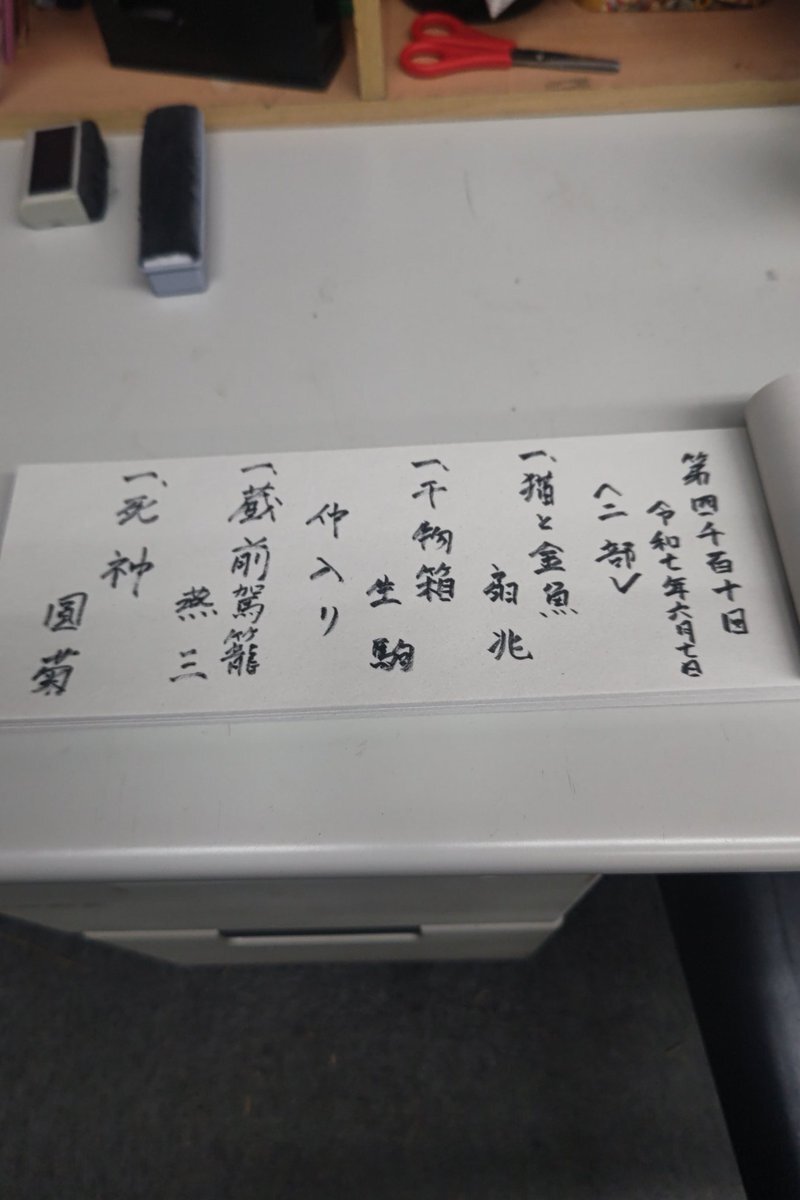 第四千百十回
令和七年六月十七日
〈二部〉
一、猫と金魚
扇兆
一、干物箱
生駒
仲入り
一、蔵前駕籠
燕三
一、死神
圓菊